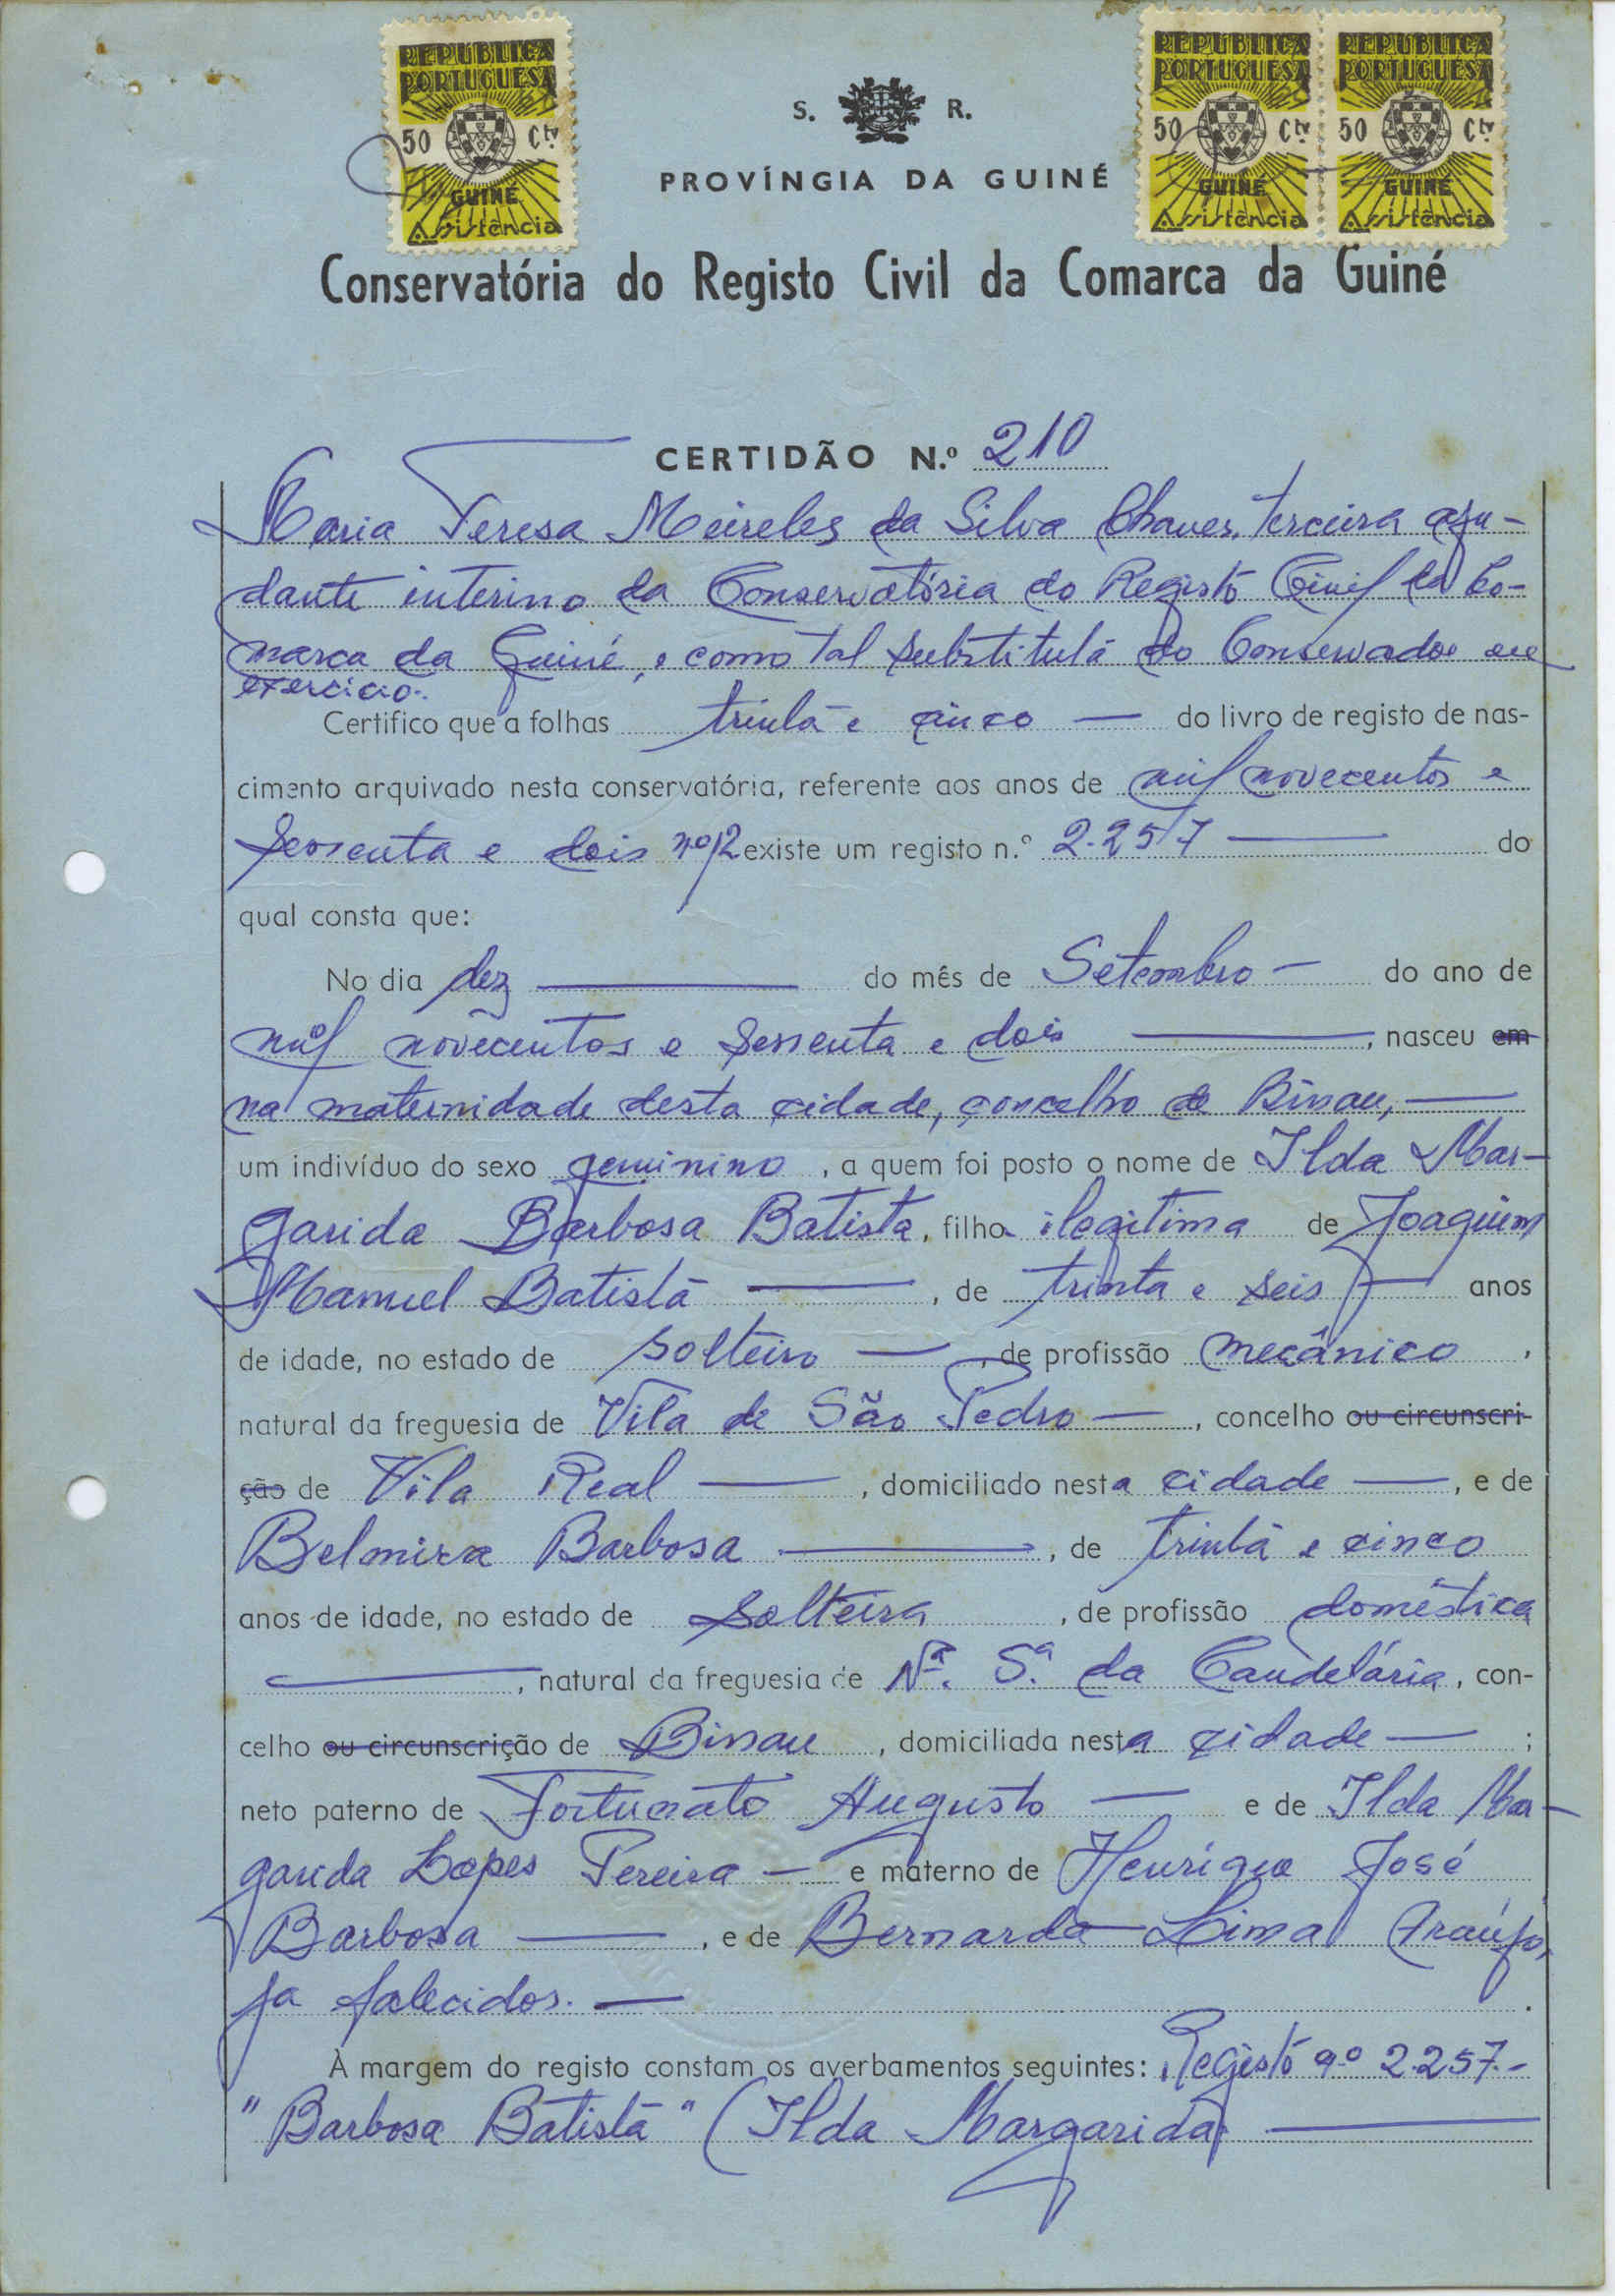 REPÚBLICA PORTUGUESA
50 Ctv.
GUINÉ
Assistência
REPÚBLICA PORTUGUESA
50 Ctv.
GUINÉ
Assistência
REPÚBLICA PORTUGUESA
50 Ctv.
GUINÉ
Assistência
S. R.
PROVÍNGIA DA GUINÉ
Conservatória do Registo Civil da Comarca da Guiné
CERTIDÃO N.º 210
Maria Teresa Meireles da Silva Chaves, terceira aju-
dante interino da Conservatória do Registo Civil da Co-
marca da Guiné, e como tal substituta do Conservador em
exercício.
Certifico que a folhas trinta e cinco — do livro de registo de nas-
cimento arquivado nesta conservatória, referente aos anos de mil novecentos e
sessenta e dois nº12 existe um registo n.º 2.257 — do
qual consta que:
No dia dez — do mês de Setembro — do ano de
mil novecentos e sessenta e dois —, nasceu em
na maternidade desta cidade, concelho de Bissau, —
um indivíduo do sexo feminino, a quem foi posto o nome de Ilda Mar-
garida Barbosa Batista, filha ilegitima de Joaquim
Manuel Batista —, de trinta e seis — anos
de idade, no estado de solteiro —, de profissão mecânico,
natural da freguesia de Vila de São Pedro —, concelho ou circunscri-
ção de Vila Real —, domiciliado nesta cidade —, e de
Belmira Barbosa —, de trinta e cinco
anos de idade, no estado de solteira, de profissão doméstica
—, natural da freguesia de Nª. Sª. da Candelária, con-
celho ou circunscrição de Bissau, domiciliada nesta cidade — ;
neto paterno de Fortunato Augusto — e de Ilda Mar-
garida Lopes Pereira — e materno de Henrique José
Barbosa —, e de Bernarda Lima Araújo,
já falecidos. — .
À margem do registo constam os averbamentos seguintes: Registo nº 2.257.-
"Barbosa Batista" (Ilda Margarida) —